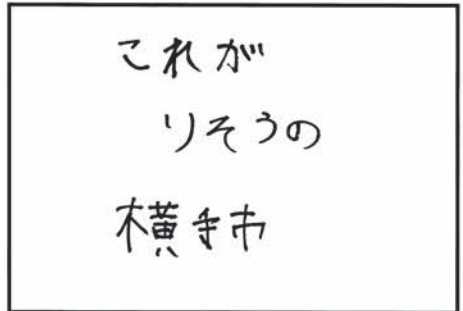 これが
りそうの
横手市